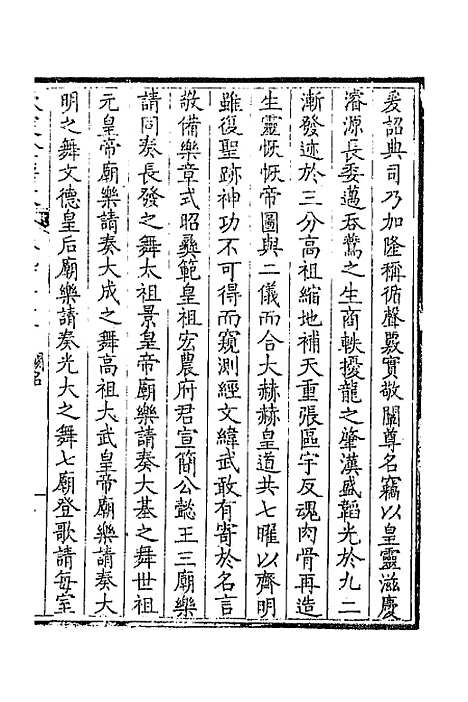 爰詔典司乃加隆稱循聲覈實敬闡尊名竊以皇靈滋慶
濬源長委邁吞鷰之生商軼擾龍之肇漢盛韜光於九二
漸發迹於三分高祖縮地補天重張區宇反魂肉骨再造
生靈恢恢帝圖與二儀而合大赫赫皇道共七曜以齊明
雖復聖跡神功不可得而窺測經文緯武敢有寄於名言
敬備樂章式昭彝範皇祖宏農府君宣簡公懿王三廟樂
請同奏長發之舞太祖景皇帝廟樂請奏大基之舞世祖
元皇帝廟樂請奏大成之舞高祖大武皇帝廟樂請奏大
明之舞文德皇后廟樂請奏光大之舞七廟登歌請每室
闕名